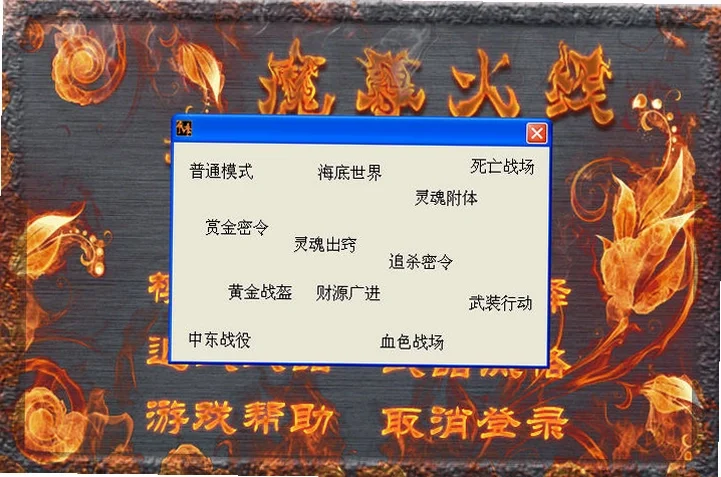 魔兽火线
普通模式 海底世界 死亡战场
灵魂附体
赏金密令
灵魂出窍
追杀密令
黄金战盔 财源广进
武装行动
中东战役 血色战场
游戏帮助 取消登录